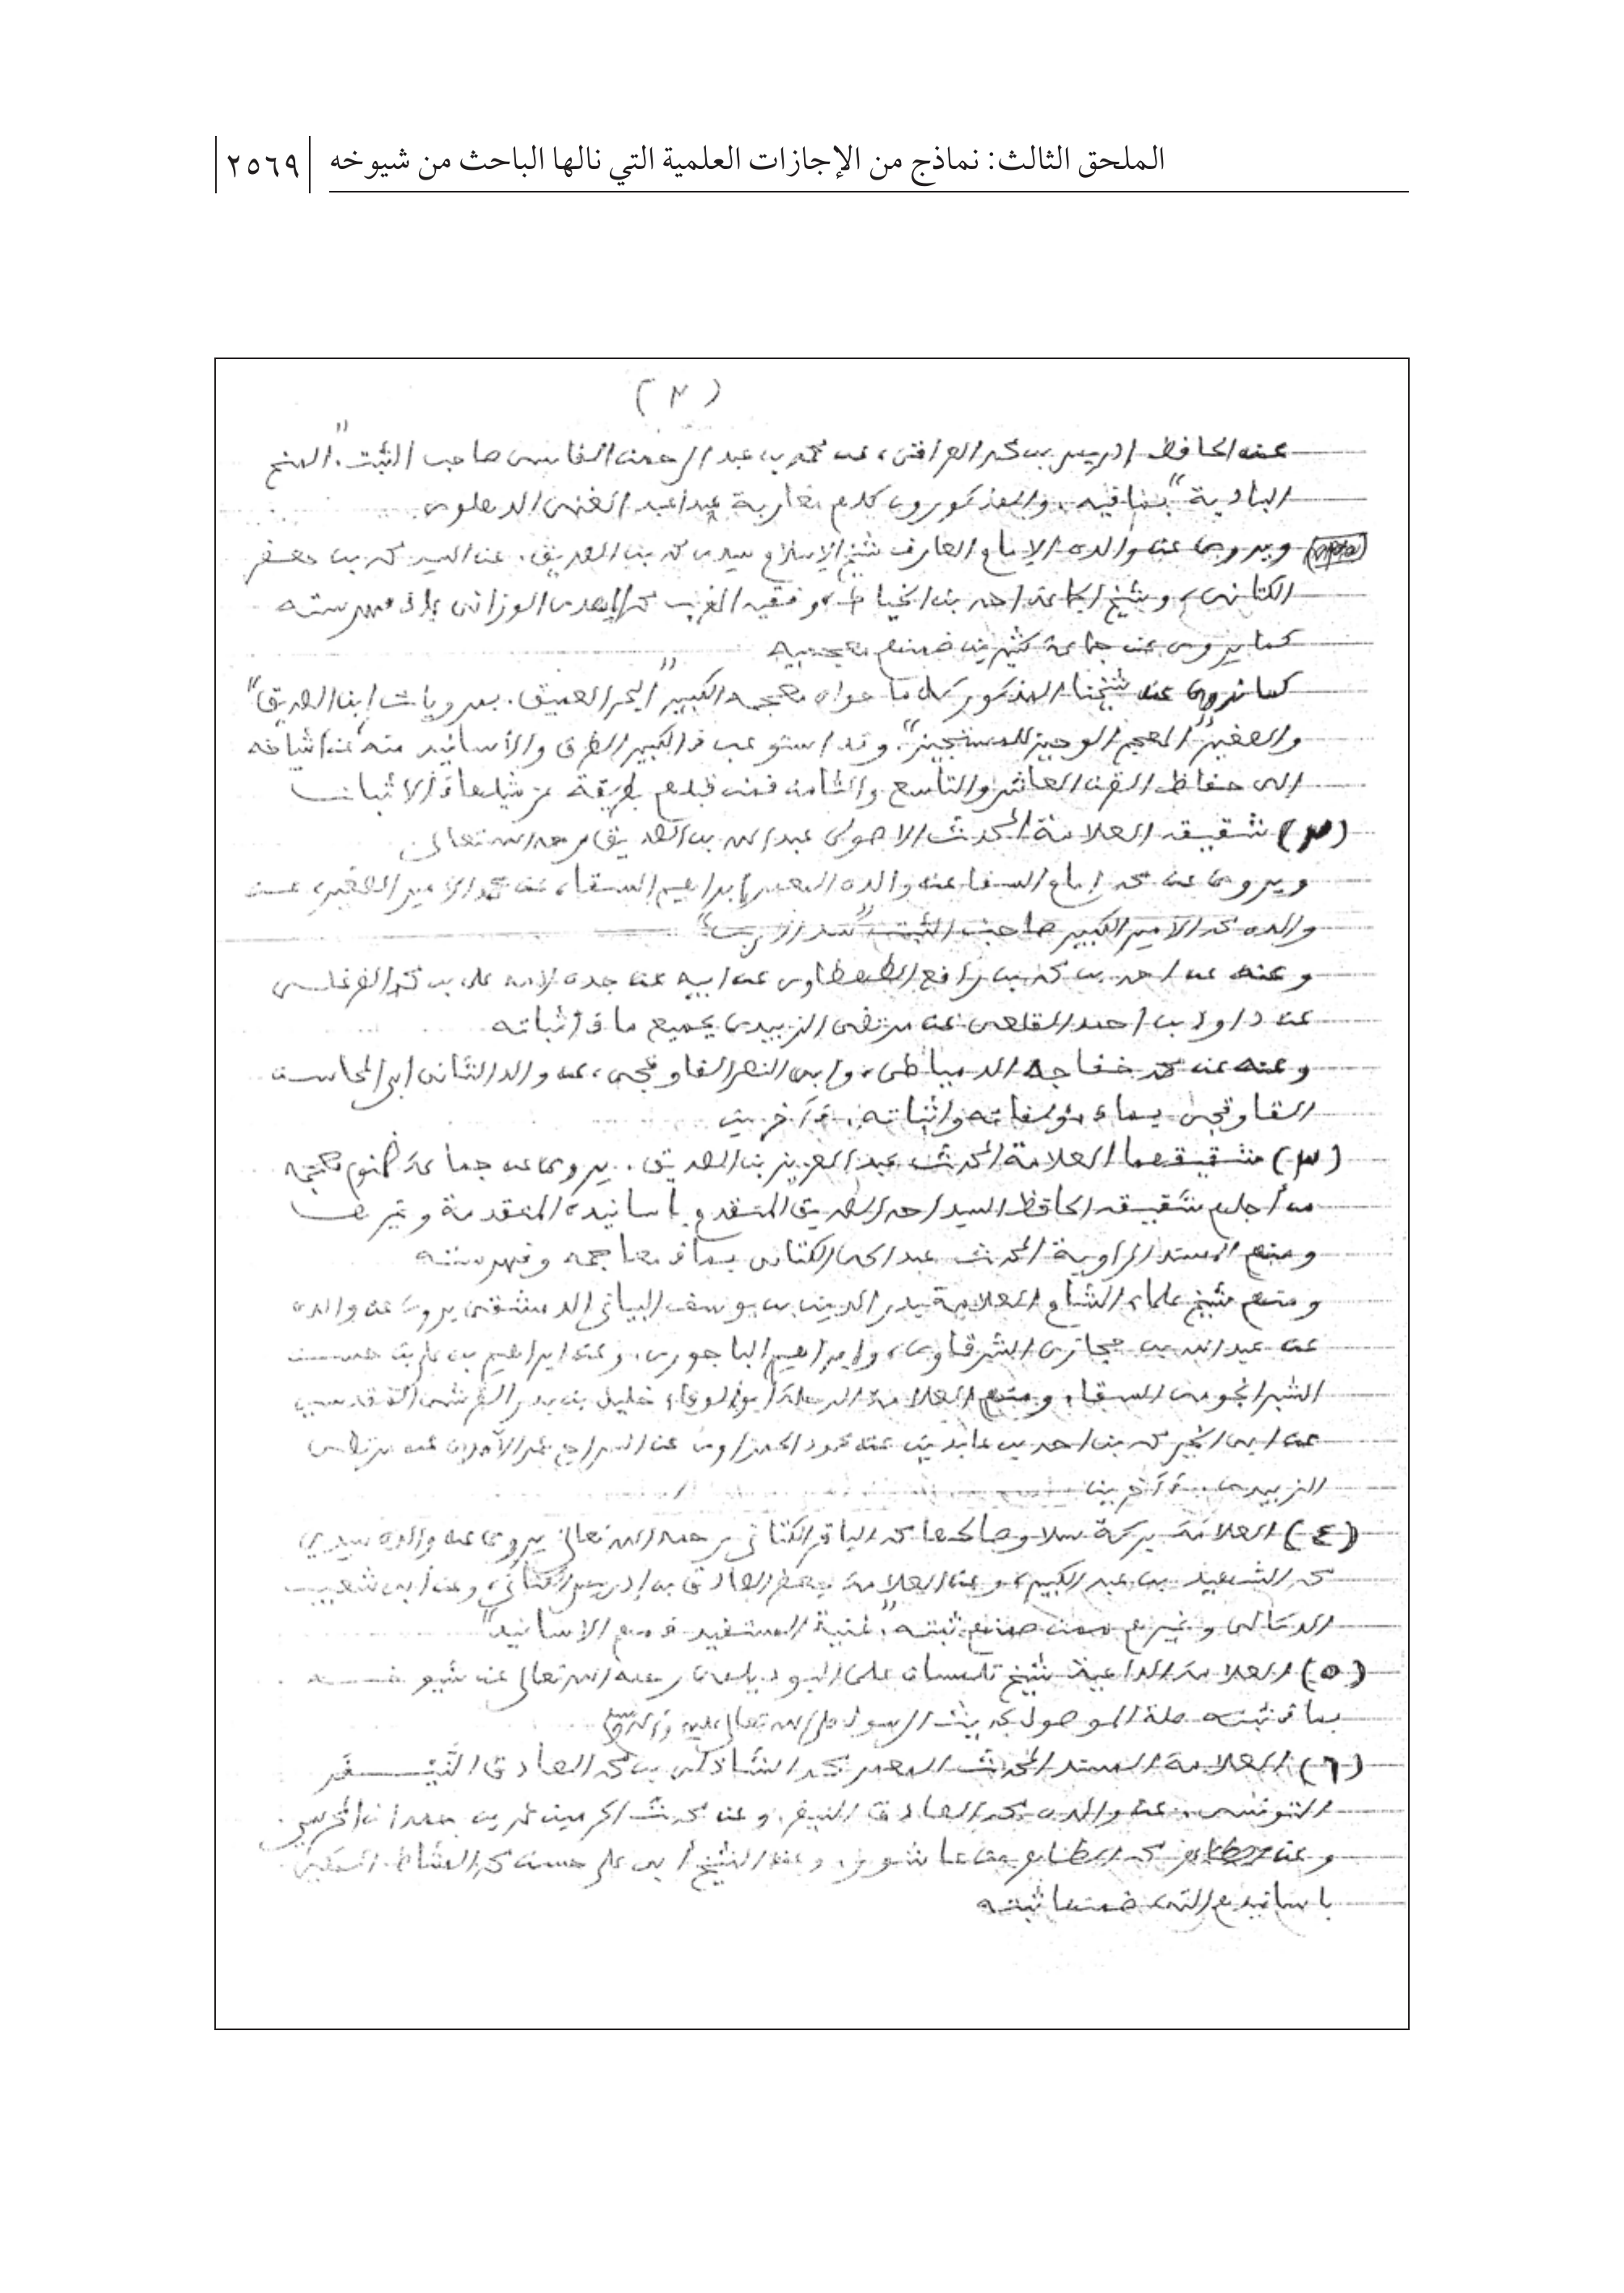 الملحق الثالث: نماذج من الإجازات العلمية التي نالها الباحث من شيوخه
٢٥٦٩
(٢)
عنه الحافظ إدريس بن محمد العراقي، عن محمد بن عبد الرحمن الفاسي صاحب الثبت "المنح
البادية" بما فيه، والمذكورون كلهم مغاربة عدا عبد الغني الدهلوي
ويروي عن والده الإمام العارف شيخ الإسلام سيدي محمد بن الصديق، عن السيد محمد بن جعفر
الكتاني، وشيخ الجماعة أحمد بن الخياط، وفقيه المغرب محمد المهدي الوزاني بما في فهرسته
كما يروي عن جماعة كثيرين ضمنهم معجميه
كما نروي عن شيخنا المذكور كل ما حواه معجمه الكبير "البحر العميق بمرويات ابن الصديق"
والصغير "المعجم الوجيز للمستجيز"، وقد استوعب في الكبير الطرق والأسانيد منه عن أشياخه
إلى حفاظ القرن العاشر والتاسع والثامن فمن قبلهم بطريقة عز مثيلها في الأثبات
(٢) شقيقه العلامة المحدث الأصولي عبد الله بن الصديق رحمه الله تعالى
ويروي عن محمد إمام السقا عن والده المعمر إبراهيم السقا، عن محمد الأمير الصغير، عن
والده محمد الأمير الكبير صاحب الثبت "سد الأرب"
وعنه عن أحمد بن محمد بن رافع الطهطاوي عن أبيه عن جده لأمه علي بن محمد الفرغلي
عن داود بن أحمد القلعي عن مرتضى الزبيدي بجميع ما في أثباته
وعنه عن محمد خفاجة الدمياطي، وأبي النصر القاوقجي، عن والد الثاني أبي المحاسن
القاوقجي بسماء مؤلفاته وأثباته، في آخرين
(٣) شقيقهما العلامة المحدث عبد العزيز بن الصديق، يروي عن جماعة ضمنهم معجمه
من أجلهم شقيقه الحافظ السيد أحمد الصديق المتقدم بأسانيده المتقدمة وغيرها
ومنهم المسند الراوية المحدث عبد الحي الكتاني بما في معاجمه وفهرسته
ومنهم شيخ علماء الشام العلامة بدر الدين بن يوسف البياني الدمشقي يروي عن والده
عن عبد الله بن حجازي الشرقاوي، وإبراهيم الباجوري، وعن إبراهيم بن علي بن حسن
الشبرانجومي السقا، ومنهم العلامة الرحلة أبو الوفاء خليل بن بدر القرشي المقدسي
عن أبي الخير محمد بن أحمد بن عابدين عن محمود الحمزاوي عن السراج عمر الآمدي عن مرتضى
الزبيدي في آخرين
(٤) العلامة بركة سلا وصالحها محمد الباقر الكتاني رحمه الله تعالى يروي عن والده سيدي
محمد الشهيد بن عبد الكبير، وعن العلامة جعفر الصادق بن إدريس الكتاني، وعن أبي شعيب
الدكالي وغيرهم ممن ضمنهم ثبته "غنية المستفيد في مهم الأسانيد"
(٥) العلامة الداعية شيخ تلمسان علي البوديلمي رحمه الله تعالى عن شيوخه
بما في ثبته صلة الموصول بحديث الرسول صلى الله تعالى عليه وآله وسلم
(٦) العلامة المسند المحدث المعمر محمد الشاذلي بن محمد الصادق النيفر
التونسي، عن والده محمد الصادق النيفر، وعن محدث الحرمين عمر بن حمدان المحرسي
وعن محمد الطاهر بن عاشور، وعن الشيخ أبي علي حسن محمد المشاط المكي
بأسانيدهم التي ضمنها ثبته